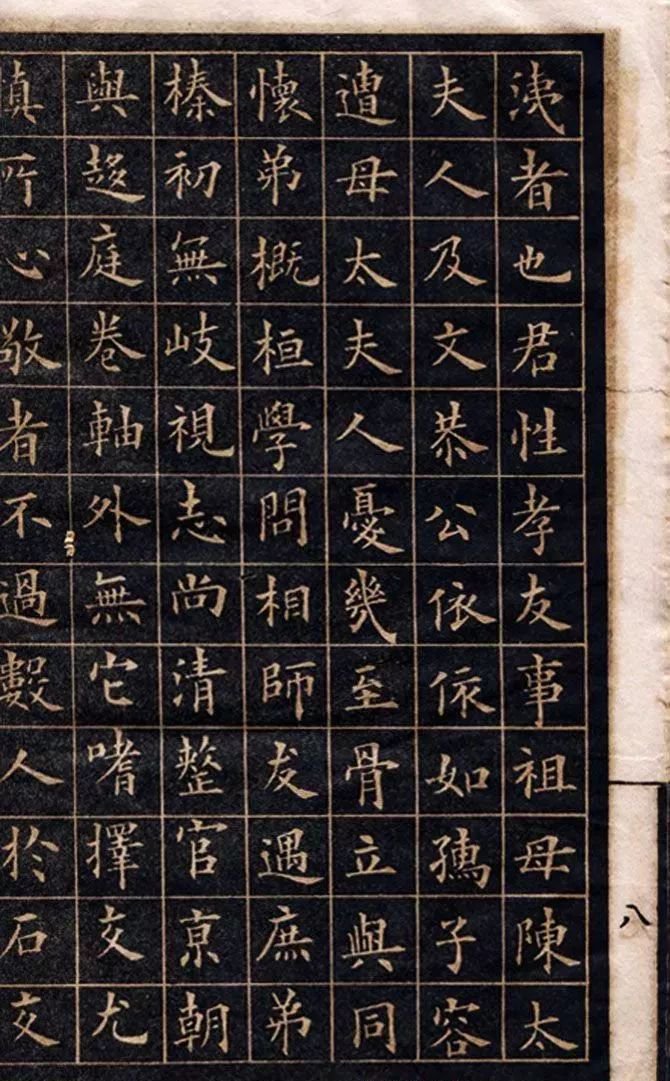 洟者也君性孝友事祖母陳太
夫人及文恭公依依如孺子容
遭母太夫人憂幾至骨立與同
懷弟概桓學問相師友遇庶弟
榛初無岐視志尚清整官亰朝
與趍庭卷軸外無它嗜擇交尤
慎所心敬者不過數人於石交
八